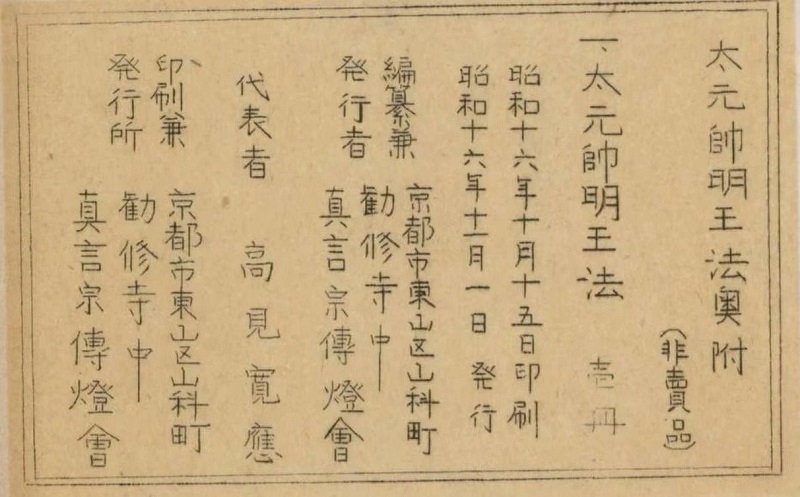 太元帥明王法奥附
(非賣品)
一、太元帥明王法 壱冊
昭和十六年十月十五日印刷
昭和十六年十一月一日 発行
編纂兼
発行者
京都市東山区山科町
勧修寺中
真言宗傳燈會
代表者 高見寛應
印刷兼
発行所
京都市東山区山科町
勧修寺中
真言宗傳燈會